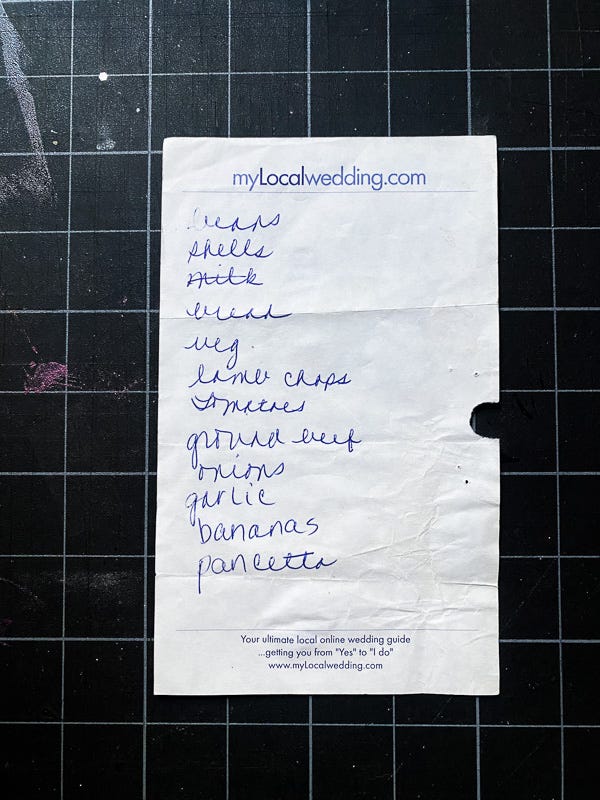 myLocalwedding.com
beans
shells
milk
bread
veg.
lamb chops
tomatoes
ground beef
onions
garlic
bananas
pancetta
Your ultimate local online wedding guide
...getting you from "Yes" to "I do"
www.myLocalwedding.com